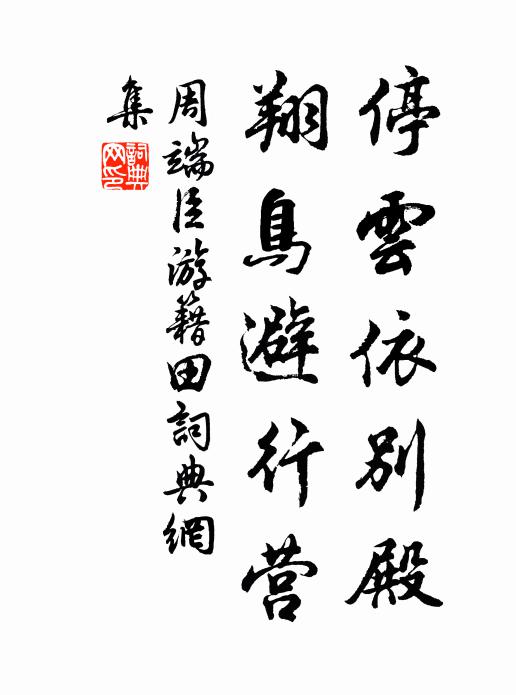 停雲依別殿
翔鳥避行营
周端臣游籍田詞典網
集
詞典
网印